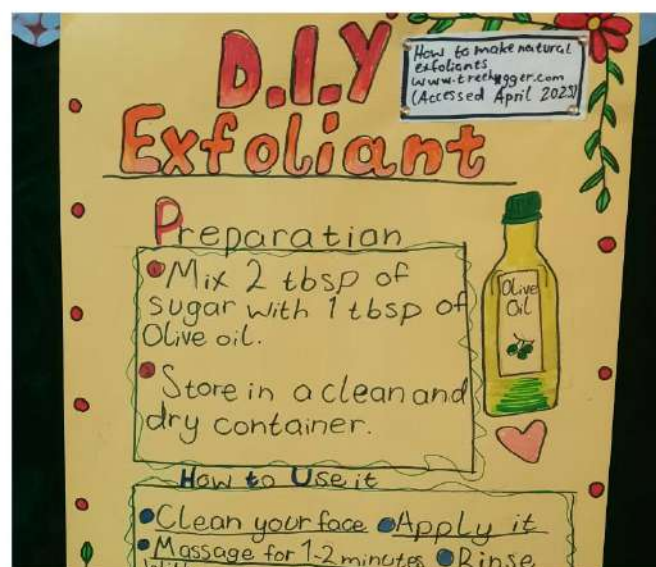 D.I.Y
Exfoliant
How to make natural
exfoliants
www.treehugger.com
(Accessed April 2025)
Preparation
•Mix 2 tbsp of
sugar with 1 tbsp of
Olive oil.
•Store in a clean and
dry container.
Olive
Oil
How to Use it
•Clean your face •Apply it
•Massage for 1-2 minutes •Rinse